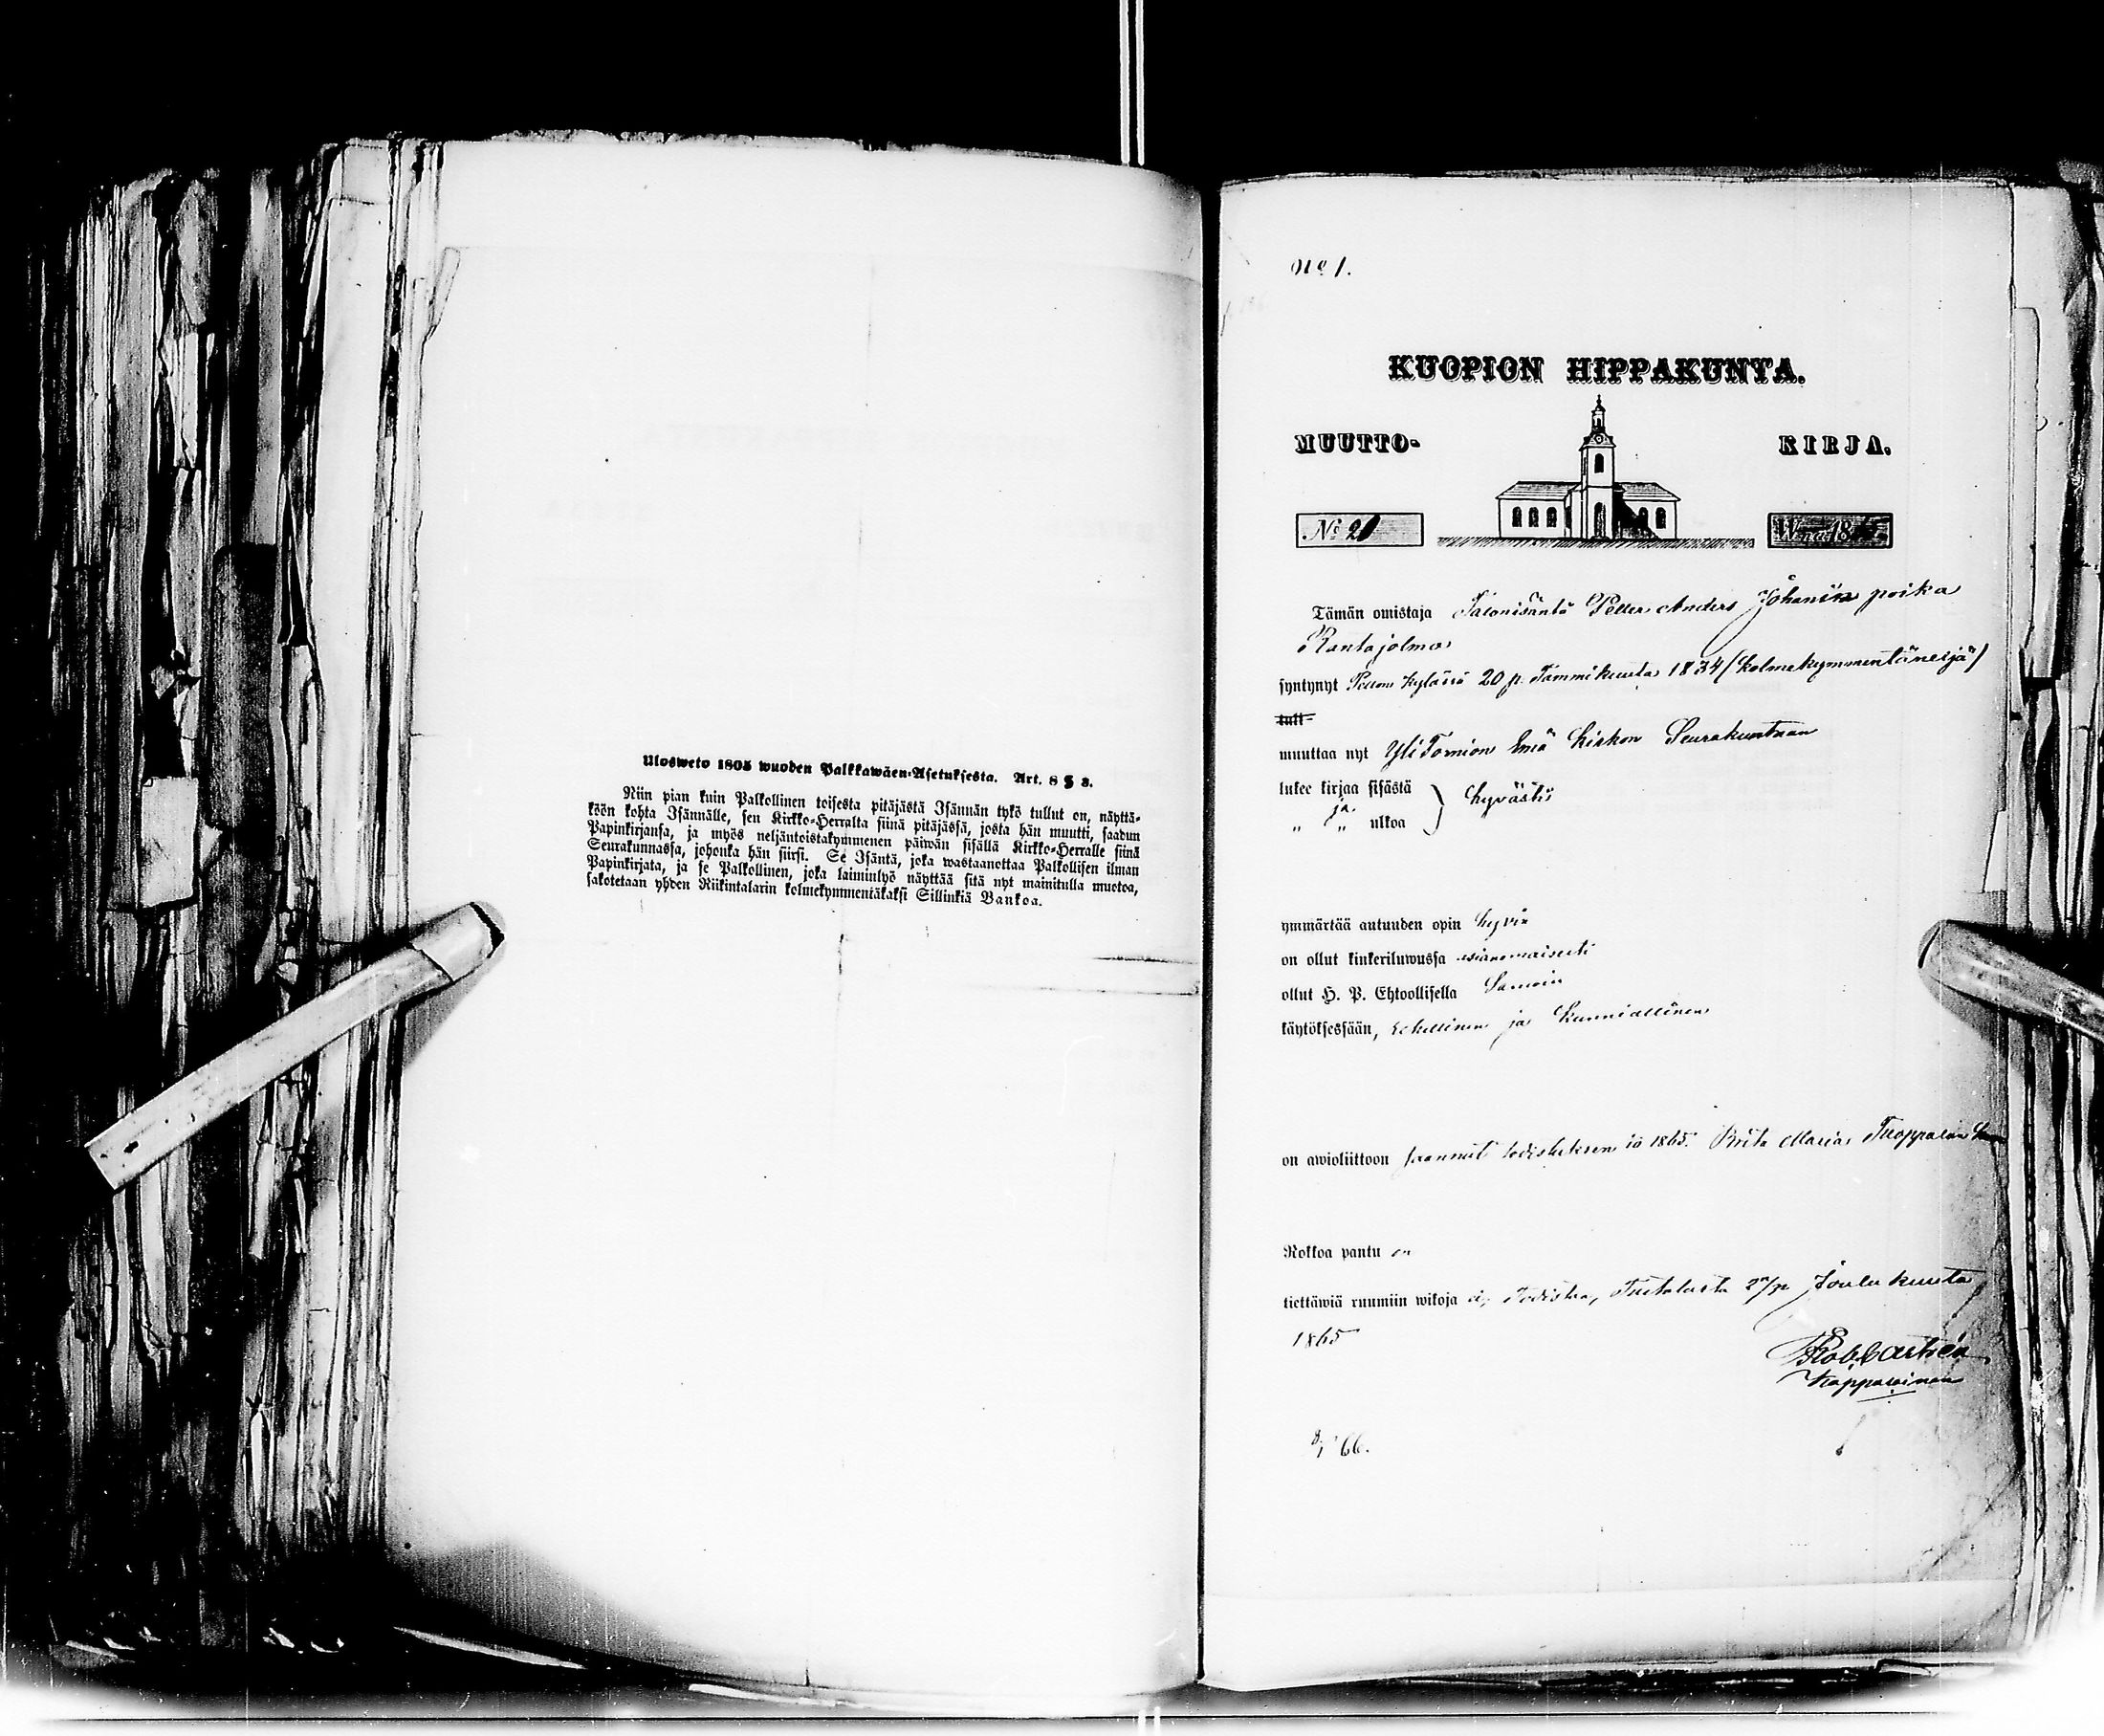 Ulosweto 1805 wuoden Palkkawäen-Asetuksesta. Art. 8 § 3.
Niin pian kuin Palkollinen toisesta pitäjästä Isännän tykö tullut on, näyttä-
köön kohta Isännälle, sen Kirkko-Herralta siinä pitäjässä, josta hän muutti, saadun
Papinkirjansa, ja myös neljäntoistakymmenen päiwän sisällä Kirkko-Herralle siinä
Seurakunnassa, johonka hän siirsi. Se Isäntä, joka wastaanottaa Palkollisen ilman
Papinkirjata, ja se Palkollinen, joka laiminlyö näyttää sitä nyt mainitulla muotoa,
sakotetaan yhden Riikintalarin kolmekymmentäkaksi Sillinkiä Bankoa.
No 1.
KUOPION HIPPAKUNTA.
MUUTTO- KIRJA.
No 20 W:na 18
Tämän omistaja Talonisäntä Petter Anders Johanin poika
Rantajolma
syntynyt Pellon kylässä 20 p. Tammikuuta 1834 (kolmekymmentäneljä)
tull-
muuttaa nyt YliTornion Emä Kirkon Seurakuntaan
lukee kirjaa sisästä
ja
" " ulkoa } hyvästi
ymmärtää autuuden opin hyvin
on ollut kinkeriluwussa asianomaisesti
ollut H. P. Ehtoollisella Samoin
käytöksessään, kunniallinen ja
on awioliittoon saanut todistuksen 1865. Brita Maria
Rokkoa pantu on
tiettäwiä ruumiin wikoja ei, Todistaa, Turtolasta Joulukuuta
1865
Kappalainen
8/1 66.